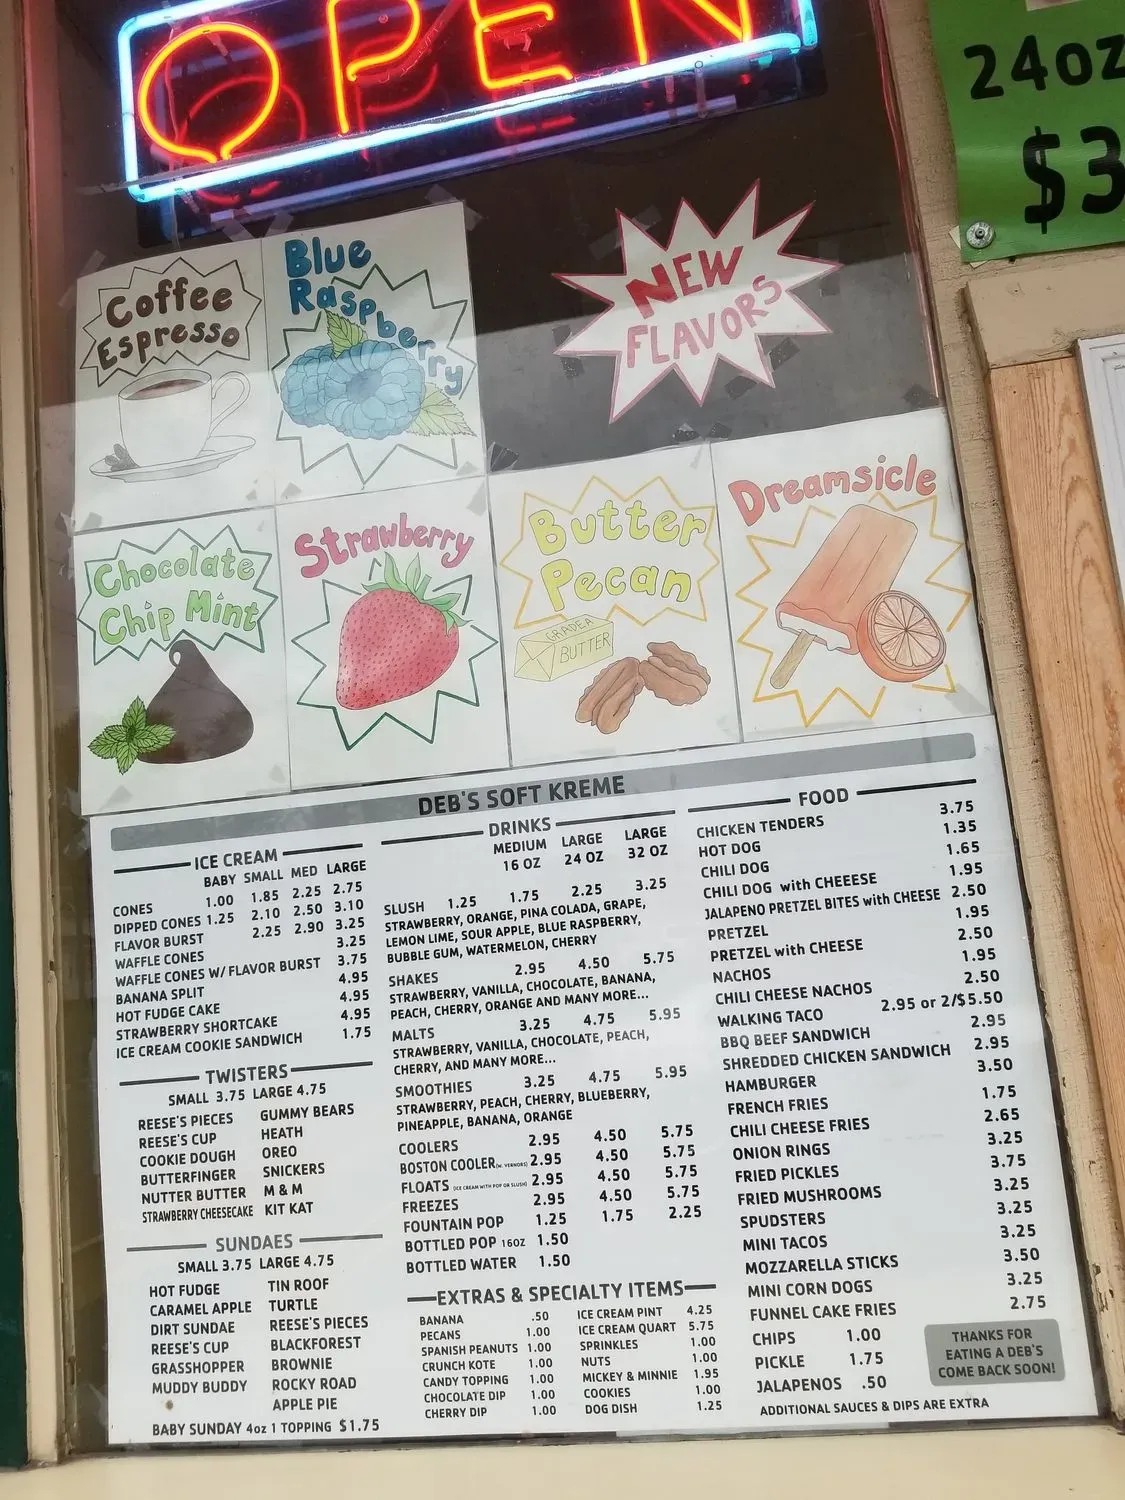 OPEN
24oz
$3
Coffee
Espresso
Blue
Raspberry
NEW
FLAVORS
Chocolate
Chip Mint
Strawberry
Butter
Pecan
GRADE A
BUTTER
Dreamsicle
DEB'S SOFT KREME
ICE CREAM
BABY SMALL MED LARGE
CONES 1.00 1.85 2.25 2.75
DIPPED CONES 1.25 2.10 2.50 3.10
FLAVOR BURST 2.25 2.90 3.25
WAFFLE CONES 3.25
WAFFLE CONES W/ FLAVOR BURST 3.75
BANANA SPLIT 4.95
HOT FUDGE CAKE 4.95
STRAWBERRY SHORTCAKE 4.95
ICE CREAM COOKIE SANDWICH 1.75
TWISTERS
SMALL 3.75 LARGE 4.75
REESE'S PIECES GUMMY BEARS
REESE'S CUP HEATH
COOKIE DOUGH OREO
BUTTERFINGER SNICKERS
NUTTER BUTTER M & M
STRAWBERRY CHEESECAKE KIT KAT
SUNDAES
SMALL 3.75 LARGE 4.75
HOT FUDGE TIN ROOF
CARAMEL APPLE TURTLE
DIRT SUNDAE REESE'S PIECES
REESE'S CUP BLACKFOREST
GRASSHOPPER BROWNIE
MUDDY BUDDY ROCKY ROAD
APPLE PIE
BABY SUNDAY 4oz 1 TOPPING $1.75
DRINKS
MEDIUM LARGE LARGE
16 OZ 24 OZ 32 OZ
SLUSH 1.25 1.75 2.25 3.25
STRAWBERRY, ORANGE, PINA COLADA, GRAPE,
LEMON LIME, SOUR APPLE, BLUE RASPBERRY,
BUBBLE GUM, WATERMELON, CHERRY
SHAKES 2.95 4.50 5.75
STRAWBERRY, VANILLA, CHOCOLATE, BANANA,
PEACH, CHERRY, ORANGE AND MANY MORE...
MALTS 3.25 4.75 5.95
STRAWBERRY, VANILLA, CHOCOLATE, PEACH,
CHERRY, AND MANY MORE...
SMOOTHIES 3.25 4.75 5.95
STRAWBERRY, PEACH, CHERRY, BLUEBERRY,
PINEAPPLE, BANANA, ORANGE
COOLERS 2.95 4.50 5.75
BOSTON COOLER (W. VERNORS) 2.95 4.50 5.75
FLOATS (ICE CREAM WITH POP OR SLUSH) 2.95 4.50 5.75
FREEZES 2.95 4.50 5.75
FOUNTAIN POP 1.25 1.75 2.25
BOTTLED POP 16OZ 1.50
BOTTLED WATER 1.50
EXTRAS & SPECIALTY ITEMS
BANANA .50 ICE CREAM PINT 4.25
PECANS 1.00 ICE CREAM QUART 5.75
SPANISH PEANUTS 1.00 SPRINKLES 1.00
CRUNCH KOTE 1.00 NUTS 1.00
CANDY TOPPING 1.00 MICKEY & MINNIE 1.95
CHOCOLATE DIP 1.00 COOKIES 1.00
CHERRY DIP 1.00 DOG DISH 1.25
FOOD
CHICKEN TENDERS 3.75
HOT DOG 1.35
CHILI DOG 1.65
CHILI DOG with CHEEESE 1.95
JALAPENO PRETZEL BITES with CHEESE 2.50
PRETZEL 1.95
PRETZEL with CHEESE 2.50
NACHOS 1.95
CHILI CHEESE NACHOS 2.50
WALKING TACO 2.95 or 2/$5.50
BBQ BEEF SANDWICH 2.95
SHREDDED CHICKEN SANDWICH 2.95
HAMBURGER 3.50
FRENCH FRIES 1.75
CHILI CHEESE FRIES 2.65
ONION RINGS 3.25
FRIED PICKLES 3.75
FRIED MUSHROOMS 3.25
SPUDSTERS 3.25
MINI TACOS 3.25
MOZZARELLA STICKS 3.50
MINI CORN DOGS 3.25
FUNNEL CAKE FRIES 2.75
CHIPS 1.00
PICKLE 1.75
JALAPENOS .50
THANKS FOR
EATING A DEB'S
COME BACK SOON!
ADDITIONAL SAUCES & DIPS ARE EXTRA